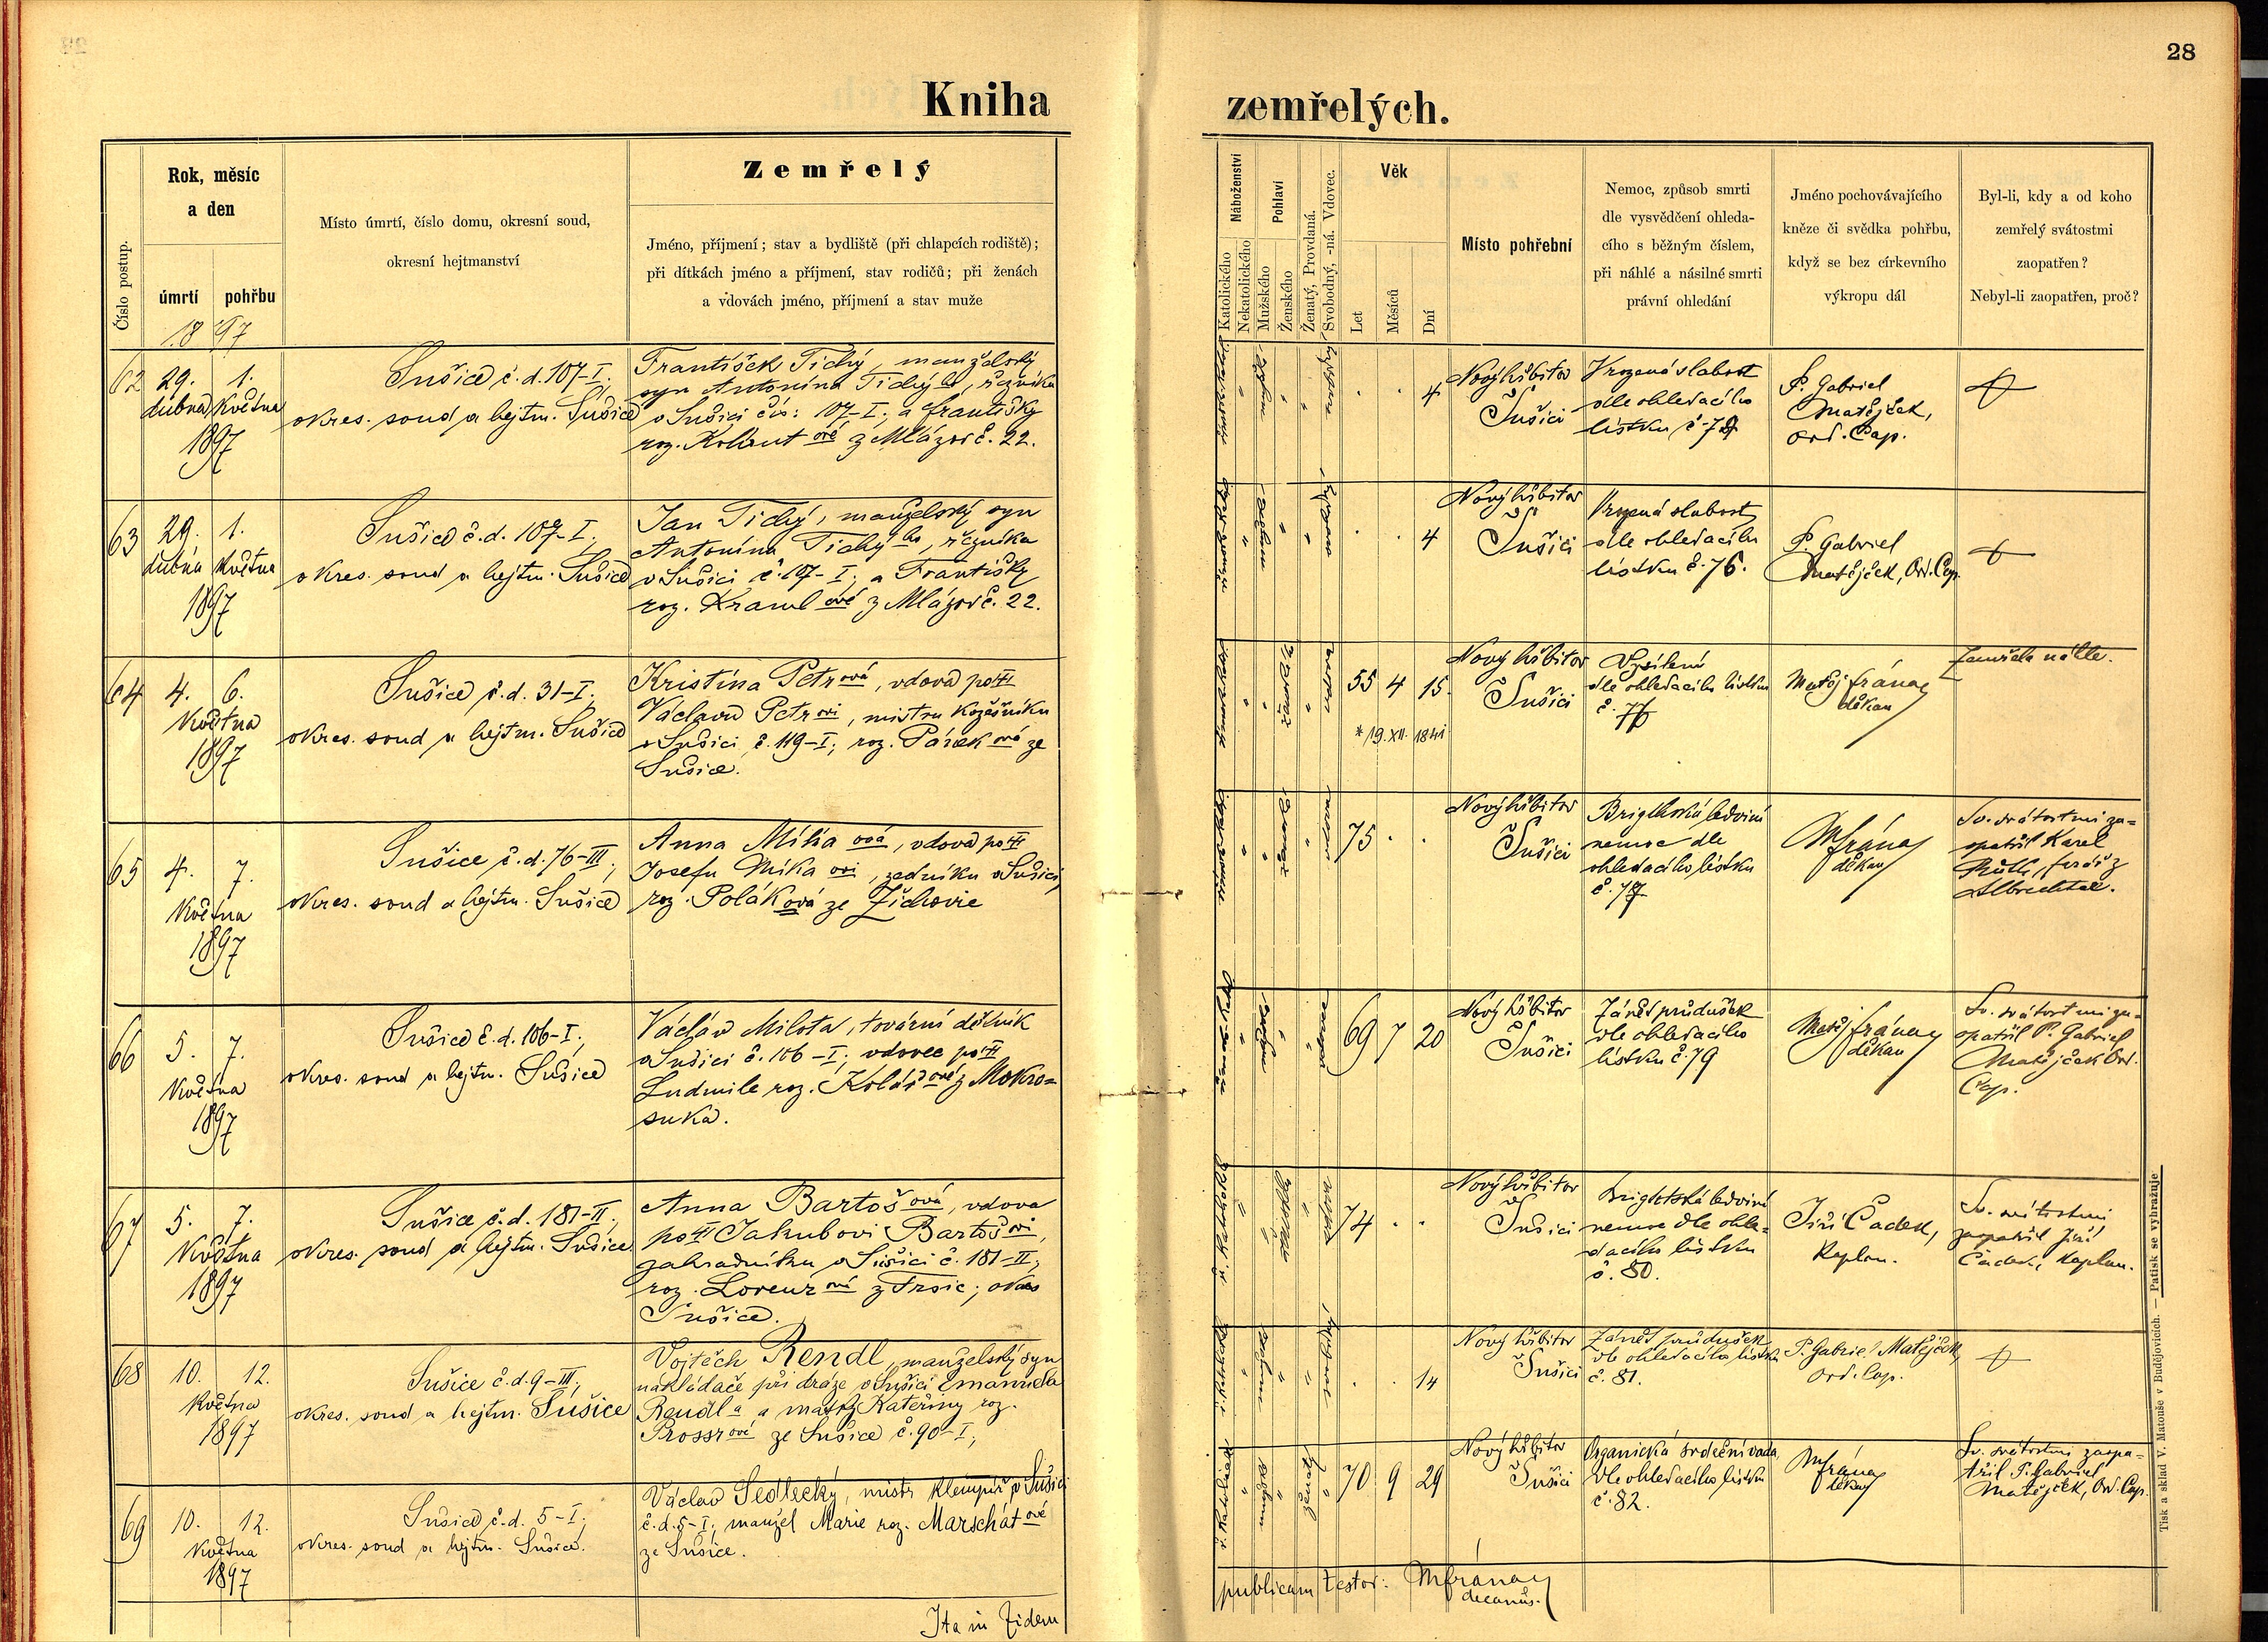 28
Kniha zemřelých.
Číslo postup.
Rok, měsíc
a den
úmrtí pohřbu
1897
Místo úmrtí, číslo domu, okresní soud,
okresní hejtmanství
Zemřelý
Jméno, příjmení; stav a bydliště (při chlapcích rodiště);
při dítkách jméno a příjmení, stav rodičů; při ženách
a vdovách jméno, příjmení a stav muže
Náboženství
Katolického
Nekatolického
Pohlaví
Mužského
Ženského
Ženatý, Provdaná.
Svobodný, -ná. Vdovec.
Věk
Let
Měsíců
Dní
Místo pohřební
Nemoc, způsob smrti
dle vysvědčení ohleda-
cího s běžným číslem,
při náhlé a násilné smrti
právní ohledání
Jméno pochovávajícího
kněze či svědka pohřbu,
když se bez církevního
výkropu dál
Byl-li, kdy a od koho
zemřelý svátostmi
zaopatřen?
Nebyl-li zaopatřen, proč?
62
29. 1.
dubna Května
1897
Sušice č.d. 107-I;
okres. soud a hejtm. Sušice
František Tichý, manželský
syn Antonína Tichýho, řezníka
v Sušici čís: 107-I; a Františky
roz. ové z Mlázov č. 22.
4
Nový hřbitov
v Sušici
Vrozená slabost
dle ohledacího
lístku č.
P. Gabriel
Matějček,
Ord. Cap.
63
29. 1.
dubna Května
1897
Sušice č.d. 107-I;
okres. soud a hejtm. Sušice
Jan Tichý, manželský syn
Antonína Tichýho, řezníka
v Sušici č. 107-I; a Františky
roz. ové z Mlázov č. 22.
4
Nový hřbitov
v Sušici
Vrozená slabost
dle ohledacího
lístku č. 76.
P. Gabriel
Matějček, Ord. Cap.
64
4. 6.
Května
1897
Sušice č.d. 31-I;
okres. soud a hejtm. Sušice
Kristina Petrová, vdova po
Václavu Petrovi, mistru kožešníku
v Sušici č. 119-I; roz. ová ze
Sušice.
55 4 15.
* 19. XII. 1841
Nový hřbitov
v Sušici
Vysílení
dle ohledacího lístku
č.
Matěj Fránay
děkan
Zemřela náhle.
65
4. 7.
Května
1897
Sušice č.d. 76-III;
okres. soud a hejtm. Sušice
Anna Míková, vdova po
Josefu Míkaovi, zedníku v Sušici,
roz. Poláková ze Žichovic
75
Nový hřbitov
v Sušici
Brightská ledviní
nemoc dle
ohledacího lístku
č.
MFránay
děkan
Sv. svátostmi za=
opatřil Karel
farář z
Albrechtce.
66
5. 7.
Května
1897
Sušice č.d. 106-I;
okres. soud a hejtm. Sušice
Václav Milota, tovární dělník
v Sušici č. 106-I; vdovec po
Ludmile roz. Kolářové z Mokro=
suka.
69 7 20
Nový hřbitov
v Sušici
Zánět průdušek
dle ohledacího
lístku č. 79
Matěj Fránay
děkan
Sv. svátostmi za=
opatřil P. Gabriel
Matějček Ord.
Cap.
67
5. 7.
Května
1897
Sušice č.d. 181-II;
okres. soud a hejtm. Sušice
Anna Bartošová, vdova
po Jakubovi Bartošovi,
zahradníku v Sušici č. 181-II;
roz. Lorenzová z Frsic; okres
Sušice.
74
Nový hřbitov
v Sušici
Brightská ledviní
nemoc dle ohle=
dacího lístku
č. 80.
Jiří Čadek,
Kaplan.
Sv. svátostmi
zaopatřil Jiří
Čadek, Kaplan.
68
10. 12.
Května
1897
Sušice č.d. 9-III;
okres. soud a hejtm. Sušice
Vojtěch Rendl, manželský syn
nakládače při dráze v Sušici Emanuela
Rendla a matky Kateřiny roz.
Prossrové ze Sušice č. 90-I;
14
Nový hřbitov
v Sušici
Zánět průdušek
dle ohledacího lístku
č. 81.
P. Gabriel Matějček
Ord. Cap.
69
10. 12.
Května
1897
Sušice č.d. 5-I;
okres. soud a hejtm. Sušice.
Václav Sedlecký, mistr klempíř v Sušici
č.d. 5-I; manžel Marie roz. Marschátové
ze Sušice.
70 9 29
Nový hřbitov
v Sušici
Organická srdeční vada
dle ohledacího lístku
č. 82.
MFránay
děkan
Sv. svátostmi zaopa=
třil P. Gabriel
Matějček, Ord. Cap.
Ita in fidem
publicam testor: MFránay
decanus.
Tisk a sklad V. Matouše v Budějovicích. — Patisk se vyhražuje